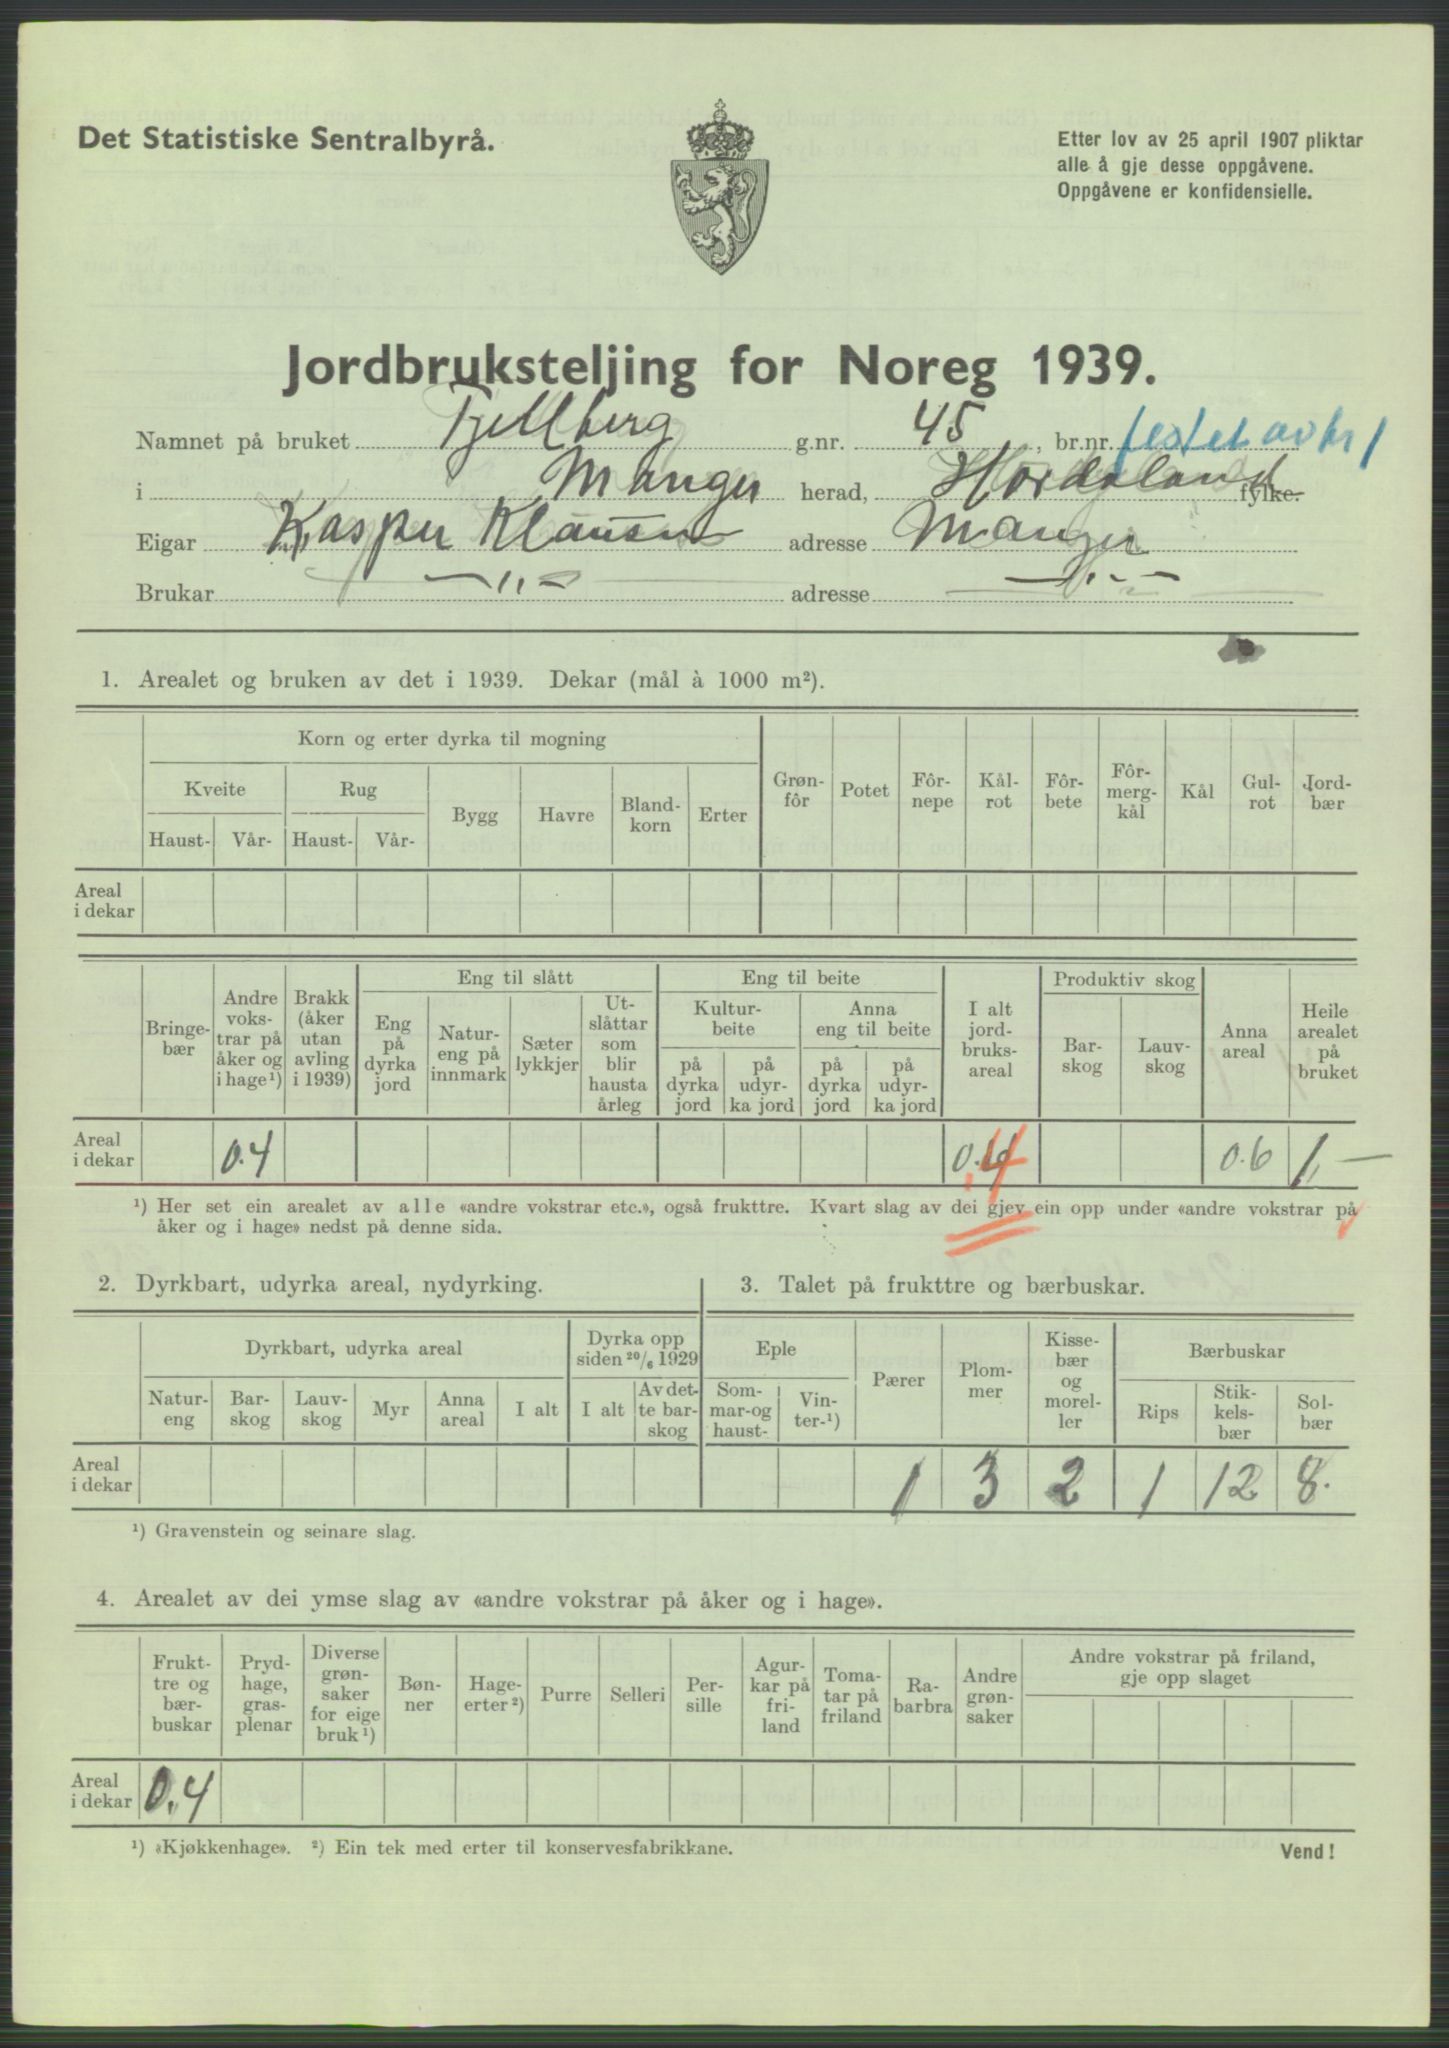 Det Statistiske Sentralbyrå.
Etter lov av 25 april 1907 pliktar
alle å gje desse oppgåvene.
Oppgåvene er konfidensielle.
Jordbruksteljing for Noreg 1939.
Namnet på bruket Fjellberg g.nr. 45, br.nr. festet av br 1
i Manger herad, Hordaland fylke.
Eigar Kasper Klausen adresse Manger
Brukar —〃— adresse —〃—
1. Arealet og bruken av det i 1939. Dekar (mål à 1000 m²).
Korn og erter dyrka til mogning
Kveite Rug
Haust- Vår- Haust- Vår- Bygg Havre Bland-korn Erter Grøn-fôr Potet Fôr-nepe Kål-rot Fôr-bete Fôr-merg-kål Kål Gul-rot Jord-bær
Areal
i dekar
Eng til slått Eng til beite Produktiv skog
Kultur-beite Anna eng til beite
Bringe-bær Andre voks-trar på åker og i hage¹) Brakk (åker utan avling i 1939) Eng på dyrka jord Natur-eng på innmark Sæter lykkjer Ut-slåttar som blir hausta årleg på dyrka jord på udyr-ka jord på dyrka jord på udyr-ka jord I alt jord-bruks-areal Bar-skog Lauv-skog Anna areal Heile arealet på bruket
Areal
i dekar 0.4 0.4 0.6 1,—
¹) Her set ein arealet av alle «andre vokstrar etc.», også frukttre. Kvart slag av dei gjev ein opp under «andre vokstrar på
åker og i hage» nedst på denne sida.
2. Dyrkbart, udyrka areal, nydyrking.
Dyrkbart, udyrka areal Dyrka opp siden ²⁰/₆ 1929
Natur-eng Bar-skog Lauv-skog Myr Anna areal I alt I alt Av det-te bar-skog
Areal
i dekar
3. Talet på frukttre og bærbuskar.
Eple Pærer Plom-mer Kisse-bær og morel-ler Bærbuskar
Som-mar-og haust- Vin-ter-¹) Rips Stik-kels-bær Sol-bær
1 3 2 1 12 8.
¹) Gravenstein og seinare slag.
4. Arealet av dei ymse slag av «andre vokstrar på åker og i hage».
Frukt-tre og bær-buskar Pryd-hage, gras-plenar Diverse grøn-saker for eige bruk¹) Bøn-ner Hage-erter²) Purre Selleri Per-sille Agur-kar på fri-land Toma-tar på friland Ra-barbra Andre grøn-saker Andre vokstrar på friland, gje opp slaget
Areal
i dekar 0.4
¹) «Kjøkkenhage». ²) Ein tek med erter til konservesfabrikkane.
Vend!